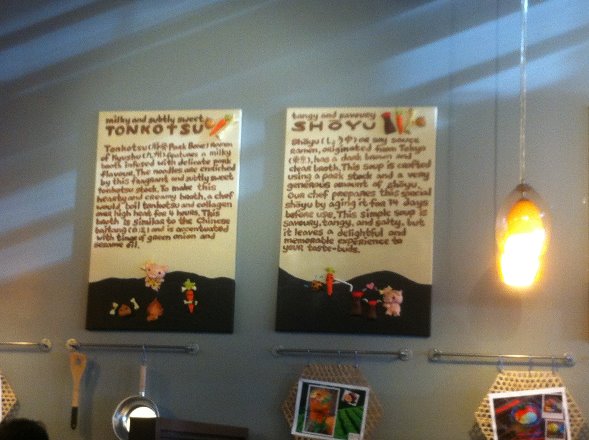 milky and subtly sweet
TONKOTSU
Tonkotsu (豚骨 Pork Bone) Ramen
of Kyushu (九州) features a milky
broth infused with delicate pork
flavour. The noodles are enriched
by this fragrant and subtly sweet
tonkotsu stock. To make this
hearty and creamy broth, a chef
would boil tonkotsu and collagen
over high heat for 4 hours. This
broth is similar to the Chinese
baitang (白汤) and is accentuated
with tinge of green onion and
sesame oil.
tangy and savoury
SHŌYU
Shōyu (しょうゆ) or soy sauce
Ramen, originated from Tokyo
(東京), has a dark brown and
clear broth. This soup is crafted
using a pork stock and a very
generous amount of shōyu.
our chef prepares this special
shōyu by aging it for days
before use. This simple soup is
savoury, tangy, and salty, but
it leaves a delightful and
memorable experience to
your taste-buds.